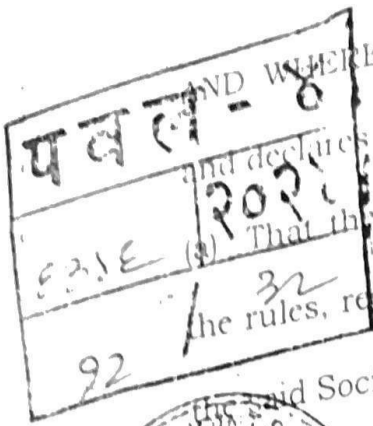 AND WHERE
पवल - ४
and declares
२०२१
(a) That th
the rules, re
१२ /
the said Soci